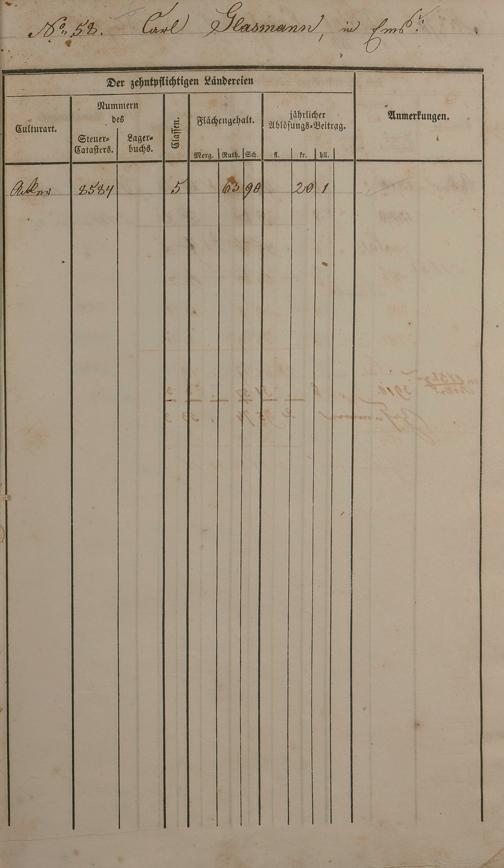 No. 58. Carl Glasmann, in Ems.
Der zehntpflichtigen Ländereien
Culturart.
Nummern
des
Steuer-
Catasters.
Lager-
buchs.
Classen.
Flächengehalt.
Morg. Ruth. Sch.
jährlicher
Ablösungs-Beitrag.
fl. kr. hll.
Anmerkungen.
Acker 8584 5 63 98 20 1